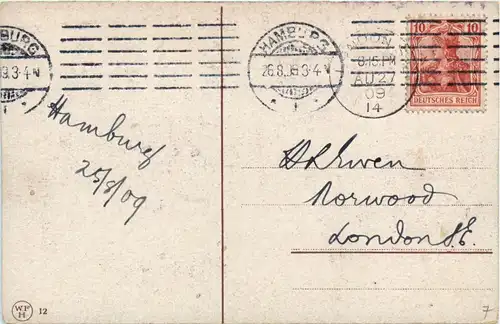 HAMBURG
26.8.09.3-4 N
8.15 PM
AU 27
09
14
10 10
DEUTSCHES REICH
Hamburg
25/8/09
Norwood
London S.E.
WPH 12
7